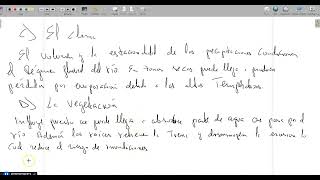 C) El clima
El volumen y la estacionalidad de las precipitaciones condicionan
el régimen fluvial del río. En zonas secas puede llegar a producir
perdidas por evaporación debido a las altas Temperaturas
D) La vegetación
Influye puesto que puede llegar a absorber parte de agua que pasa por el
río Además las raíces retienen la Tierra y disminuyen la erosión lo
cual reduce el riesgo de inundaciones